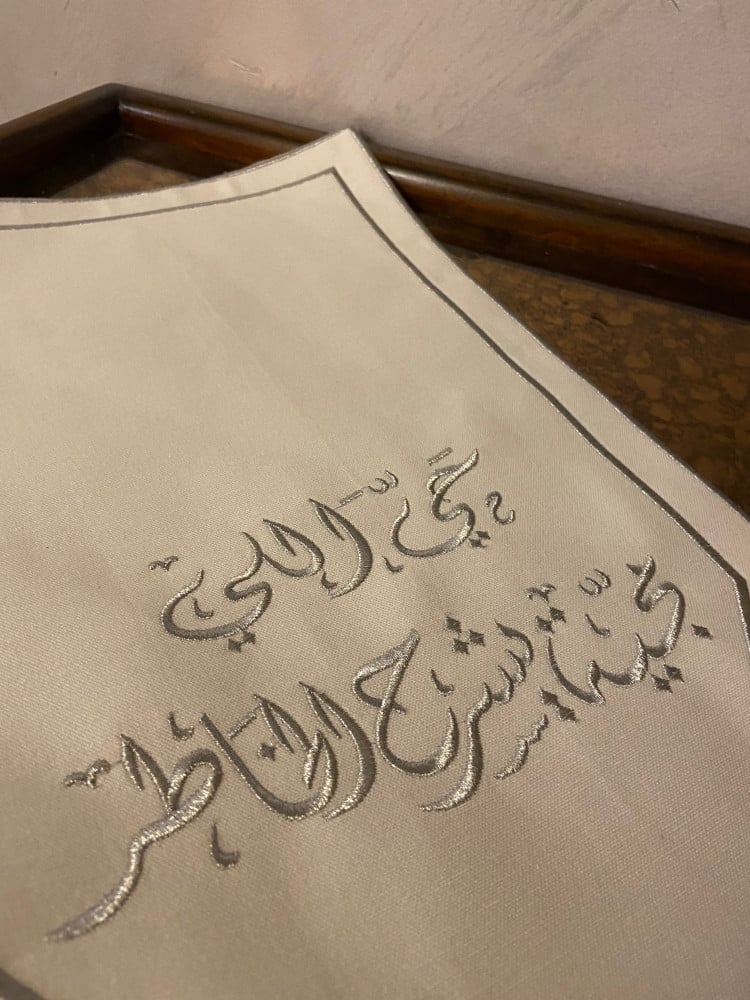 حي اللي
بجيته يشرح الخاطر